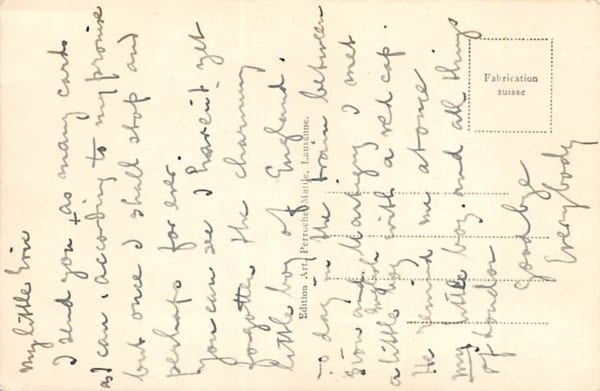 My little Eric
I send you as many cards
as I can, according to my promise
but once I shall stop and
perhaps for ever.
You can see I haven't yet
forgotten the charming
little boy of England.
To day in the train between
Sion and Martigny I met
a little boy with a red cap.
He remind me atome
my little boy and all things
of London
Goodbye
Everybody
Edition Art. Perrochet-Matile, Lausanne.
Fabrication
suisse